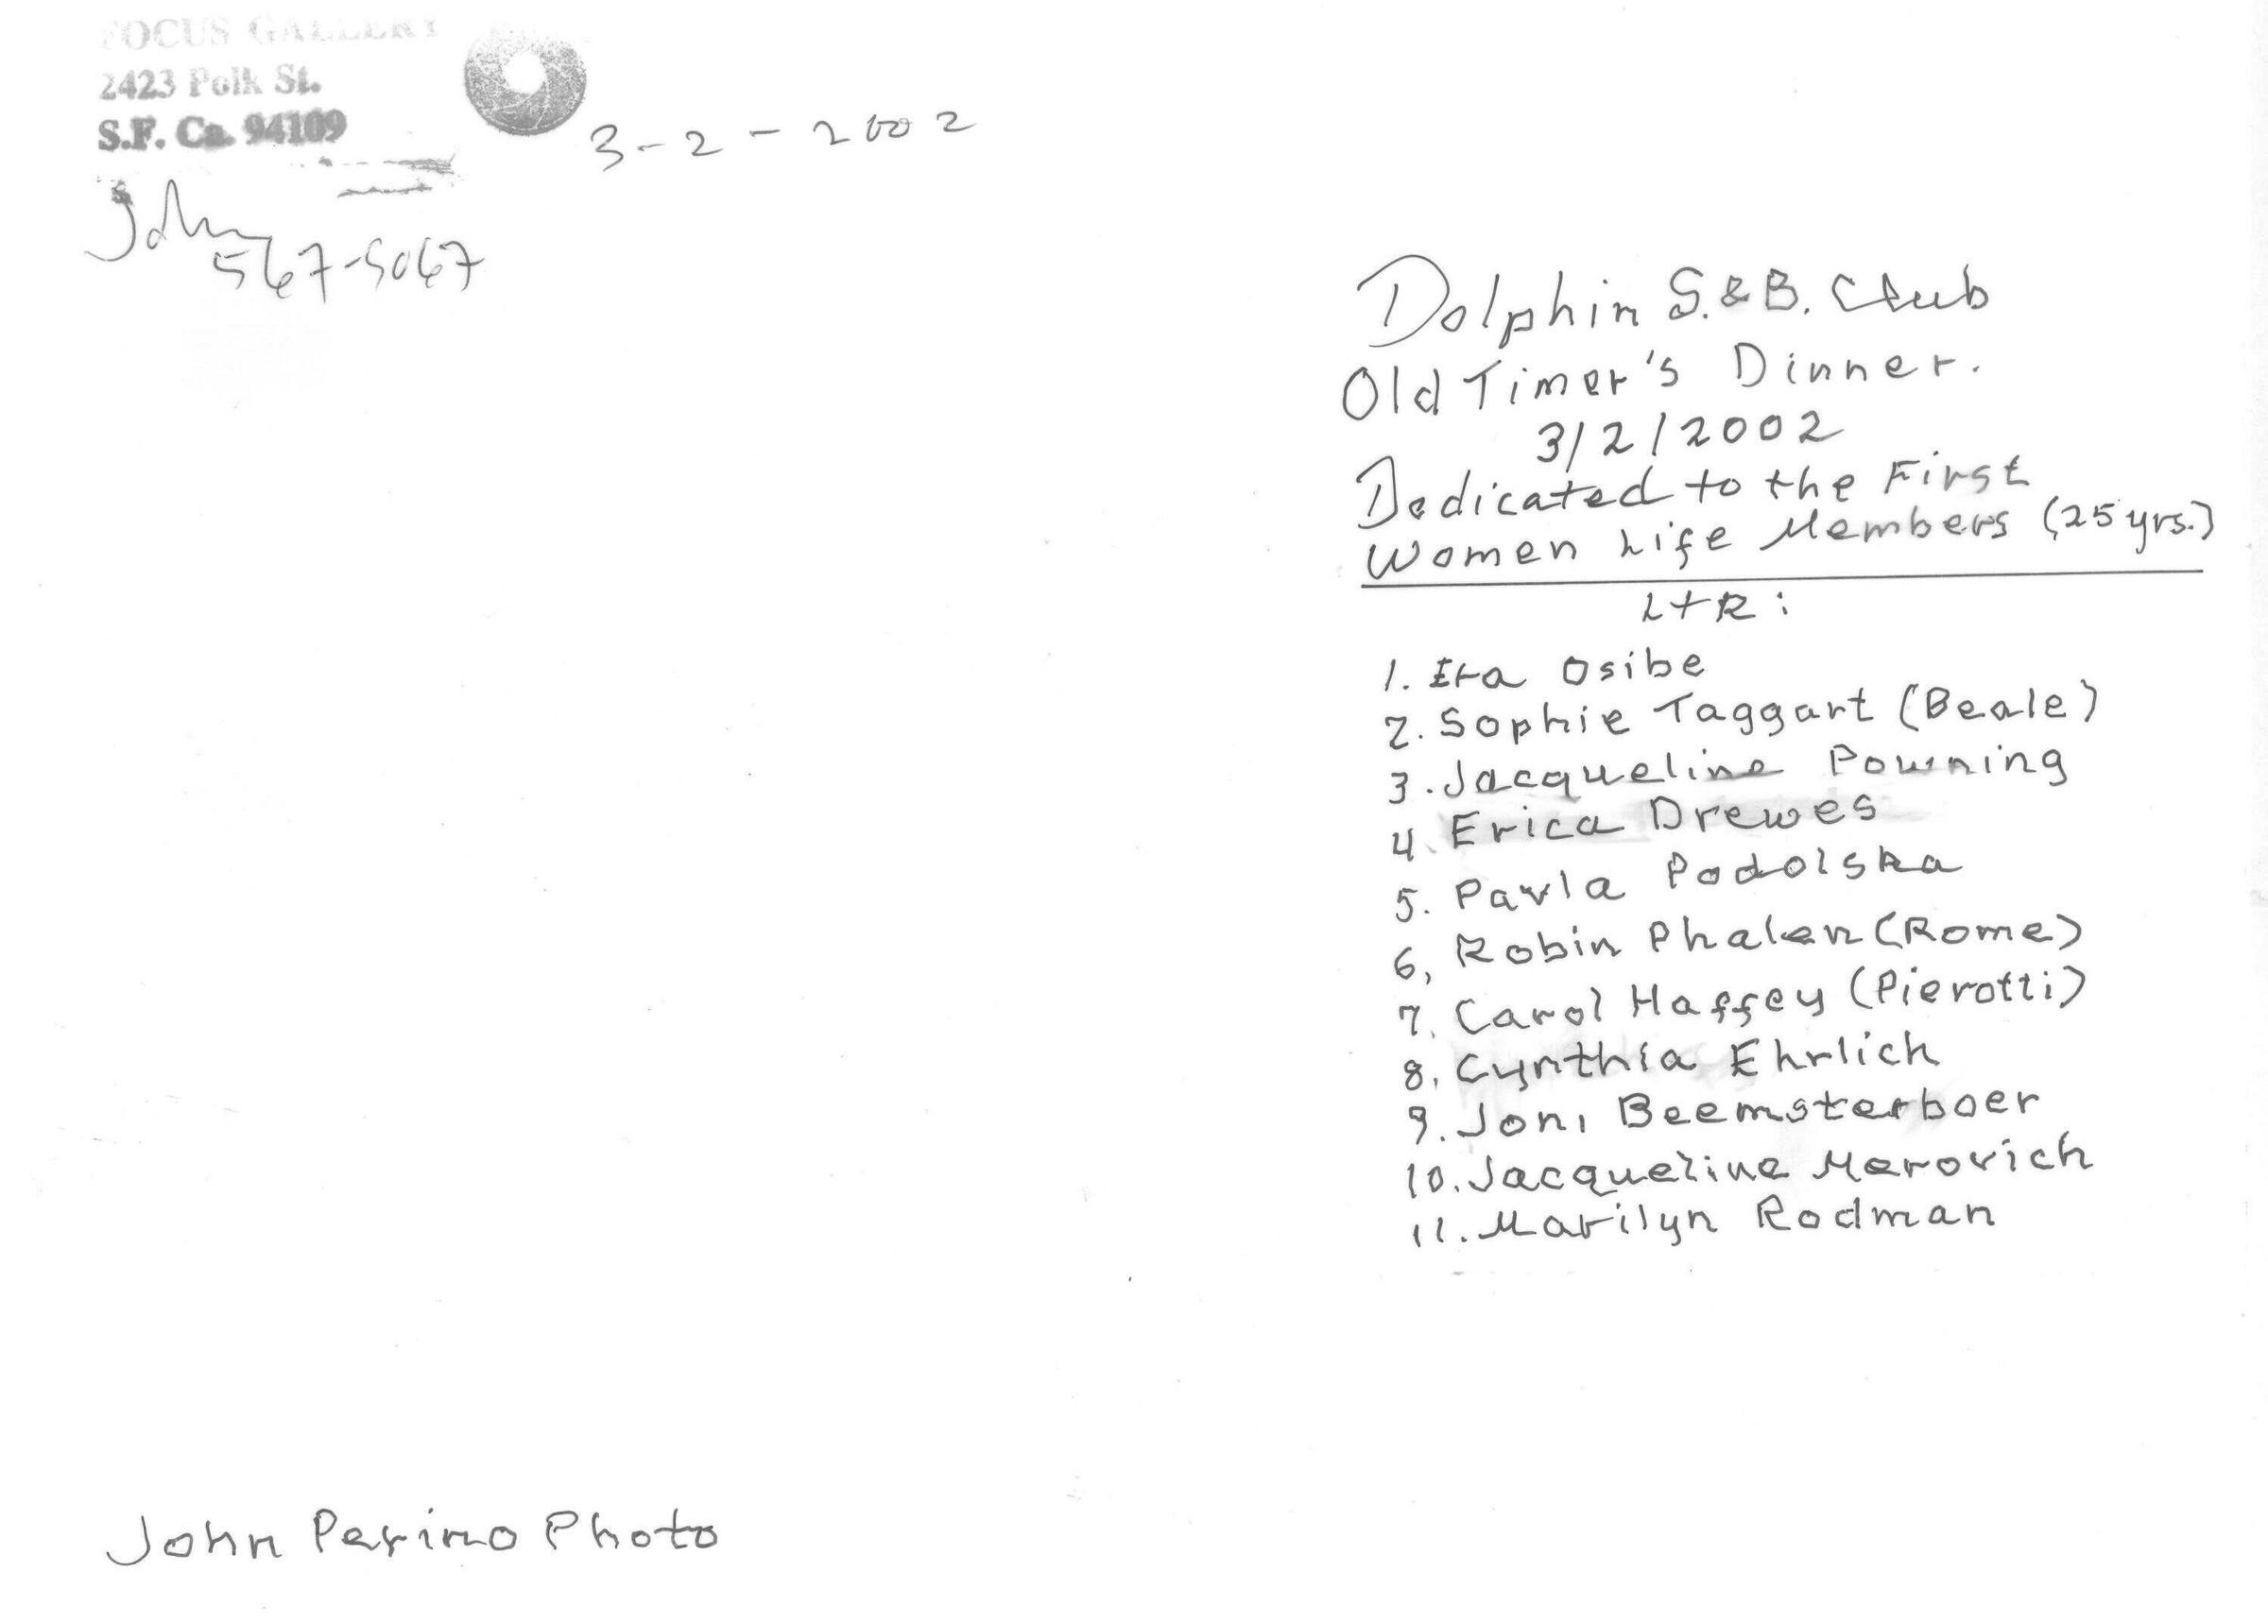 FOCUS GALLERY
2423 Polk St.
S.F. Ca. 94109
3-2-2002
John
567-5067
Dolphin S.&B. Club
Old Timer's Dinner.
3/2/2002
Dedicated to the First
Women Life Members (25 yrs.)
LTR:
1. Era Osibe
2. Sophie Taggart (Beale)
3. Jacqueline Powning
4. Erica Drewes
5. Pavla Podolska
6, Robin Phalen (Rome)
7. Carol Haffey (Pierotti)
8. Cynthia Ehrlich
9. Joni Beemsterboer
10. Jacqueline Merovich
11. Marilyn Rodman
John Perino Photo